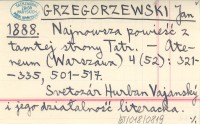 GRZEGORZEWSKI Jan
1888. Najnowsza powieść z
tamtej strony Tatr. - Ate-
neum (Warszawa) 4 (52): 321-
-335, 501-517.
Svetozár Hurban Vajanský
i jego działalność literacka.